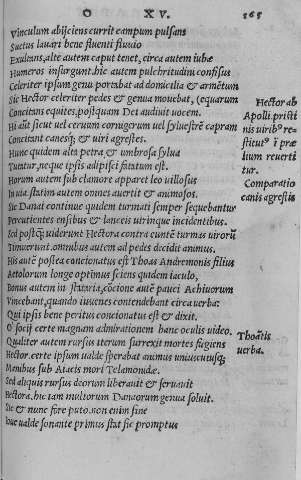 O XV. 365
Vinculum abijciens currit campum pulsans
Suetus lauari bene fluenti fluuio
Exultans, alte autem caput tenet, circa autem iubæ
Humeros insurgunt. hic autem pulchritudini confisus
Celeriter ipsum genu portabat ad domicilia & armētum
Sic Hector celeriter pedes & genua mouebat, (equarum
Concitans equites, postquam Dei audiuit uocem.
Hi aūt sicut uel ceruum cornugerum uel syluestrē capram
Concitant canesq́; & uiri agrestes.
Hunc quidem alta petra & umbrosa sylua
Tutatur, neque ipsis adipisci fatatum est.
Horum autem sub clamore apparet leo uillosus
In uia, statim autem omnes auertit & animosos.
Sic Danai continue quidem turmati semper sequebantur
Percutientes ensibus & lanceis utrinque incidentibus.
Sed postq̄ uiderunt Hectora contra euntē turmas uirorū
Timuerunt. omnibus autem ad pedes decidit animus.
His autē postea concionatus est Thoas Andremonis filius
Aetolorum longe optimus sciens quidem iaculo,
Bonus autem in stataria, cōcione autē pauci Achiuorum
Vincebant, quando iuuenes contendebant circa uerba:
Qui ipsis bene peritus concionatus est & dixit.
O' socij certe magnam admirationem hanc oculis uideo.
Qualiter autem rursus iterum surrexit mortes fugiens
Hector. certe ipsum ualde sperabat animus uniuscuiusq́;
Manibus sub Aiacis mori Telamonidæ.
Sed aliquis rursus deorum liberauit & seruauit
Hectora, hic tam multorum Danaorum genua soluit.
Sic & nunc fore puto. non enim sine
Ioue ualde sonante primus stat sic promptus
Hector ab
Apolli. pristi
nis uirib⁹ re-
stitut⁹ ī præ
lium reuerti
tur.
Comparatio
canis agrestis
Thoātis
uerba.